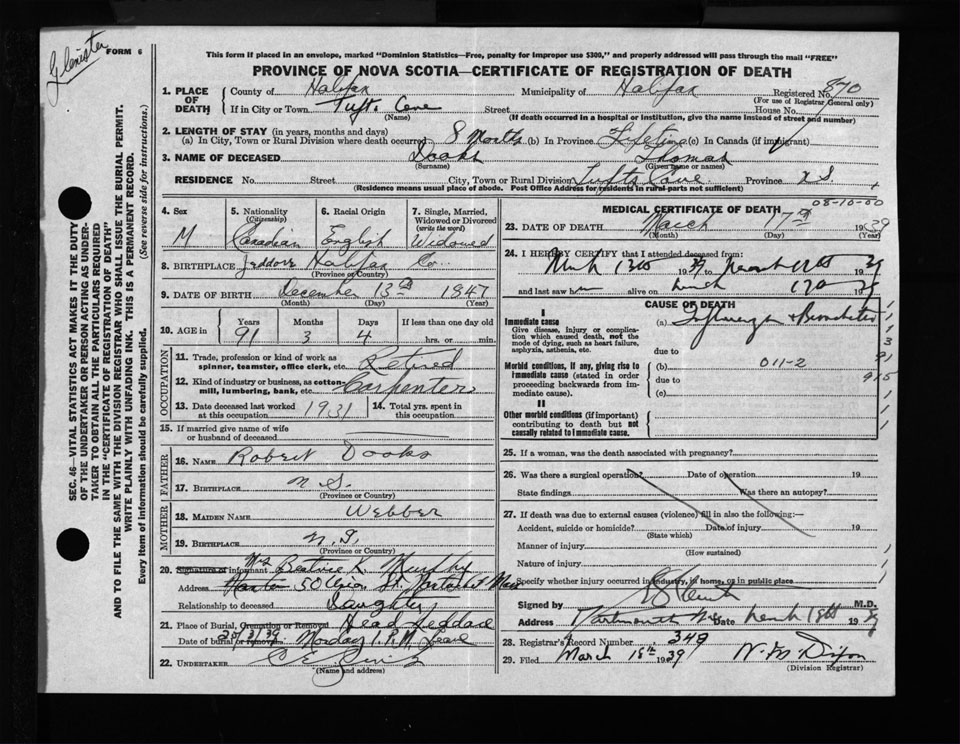 Glenister
FORM 6
This form if placed in an envelope, marked "Dominion Statistics—Free, penalty for improper use $300," and properly addressed will pass through the mail "FREE"
PROVINCE OF NOVA SCOTIA—CERTIFICATE OF REGISTRATION OF DEATH
SEC. 46—VITAL STATISTICS ACT MAKES IT THE DUTY
OF THE UNDERTAKER OR PERSON ACTING AS UNDER-
TAKER TO OBTAIN ALL THE PARTICULARS REQUIRED
IN THE "CERTIFICATE OF REGISTRATION OF DEATH"
AND TO FILE THE SAME WITH THE DIVISION REGISTRAR WHO SHALL ISSUE THE BURIAL PERMIT.
WRITE PLAINLY WITH UNFADING INK. THIS IS A PERMANENT RECORD.
Every item of information should be carefully supplied. (See reverse side for instructions.)
1. PLACE OF DEATH County of Halifax Municipality of Halifax Registered No. 870
(For use of Registrar General only)
If in City or Town Tufts Cove Street House No.
(Name) (If death occurred in a hospital or institution, give the name instead of street and number)
2. LENGTH OF STAY (in years, months and days)
(a) In City, Town or Rural Division where death occurred 8 Months (b) In Province Lifetime (c) In Canada (if immigrant)
3. NAME OF DECEASED Dooks Thomas
(Surname) (Given name or names)
RESIDENCE No. Street City, Town or Rural Division Tufts Cove Province N.S.
(Residence means usual place of abode. Post Office Address for residents in rural parts not sufficient)
4. Sex 5. Nationality (Citizenship) 6. Racial Origin 7. Single, Married, Widowed or Divorced (write the word)
M Canadian English Widowed
8. BIRTHPLACE Jeddore Halifax Co.
(Province or Country)
9. DATE OF BIRTH December 13th 1847
(Month) (Day) (Year)
10. AGE in Years Months Days If less than one day old
91 3 4 hrs. or min.
OCCUPATION
11. Trade, profession or kind of work as spinner, teamster, office clerk, etc. Retired
12. Kind of industry or business, as cotton-mill, lumbering, bank, etc. Carpenter
13. Date deceased last worked at this occupation 1931 14. Total yrs. spent in this occupation
15. If married give name of wife or husband of deceased
FATHER
16. NAME Robert Dooks
17. BIRTHPLACE N S.
(Province or Country)
MOTHER
18. MAIDEN NAME Webber
19. BIRTHPLACE N.S.
(Province or Country)
20. Signature of informant Mrs Beatrice K. Murphy
Address 50 St.
Relationship to deceased Daughter
21. Place of Burial, Cremation or Removal Head Jeddore
Date of burial or removal 20/3/39 Monday 1 P.M. Leave
22. UNDERTAKER
(Name and address)
MEDICAL CERTIFICATE OF DEATH 08-10-00
23. DATE OF DEATH March 17th 1939
(Month) (Day) (Year)
24. I HEREBY CERTIFY that I attended deceased from:
March 13th 1939 to March 17th 1939
and last saw him alive on March 17th 1939
CAUSE OF DEATH
I
Immediate cause
Give disease, injury or complication which caused death, not the mode of dying, such as heart failure, asphyxia, asthenia, etc.
(a) Influenza + Bronchitis
due to
Morbid conditions, if any, giving rise to immediate cause (stated in order proceeding backwards from immediate cause).
(b) 011-2
due to
(c)
II
Other morbid conditions (if important) contributing to death but not causally related to immediate cause.
1
1
3
91
915
1
25. If a woman, was the death associated with pregnancy?
26. Was there a surgical operation? Date of operation 19
State findings Was there an autopsy?
27. If death was due to external causes (violence) fill in also the following:—
Accident, suicide or homicide? Date of injury 19
(State which)
Manner of injury
(How sustained)
Nature of injury
Specify whether injury occurred in industry, in home, or in public place
Signed by M.D.
Address Dartmouth N.S. Date March 18th 1939
28. Registrar's Record Number 349
29. Filed March 18th 1939
(Division Registrar)